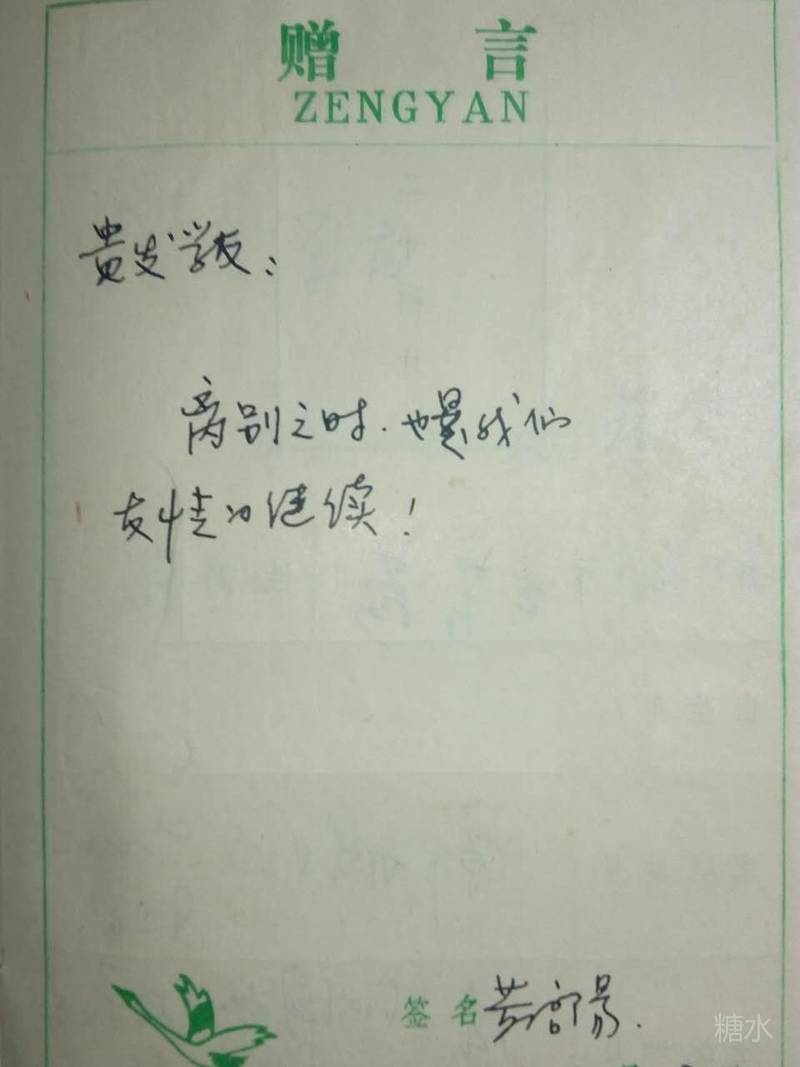 赠言
ZENGYAN
贵发学友：
离别之时.也是我们
友情的继续！
签名
糖水